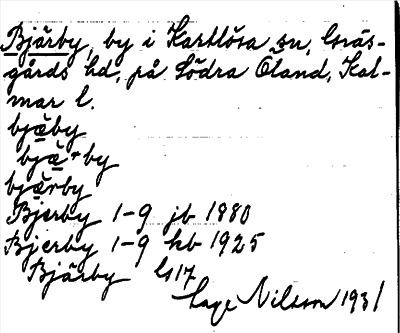 Bjärby, by i Kastlösa sn, Gräs-
gårds hd, på Södra Öland, Kal-
mar l.
bjäby
bjä+by
bjärby
Bjerby 1-9 jb 1880
Bjerby 1-9 kb 1925
Bjärby G17
Lage Nilsson 1931